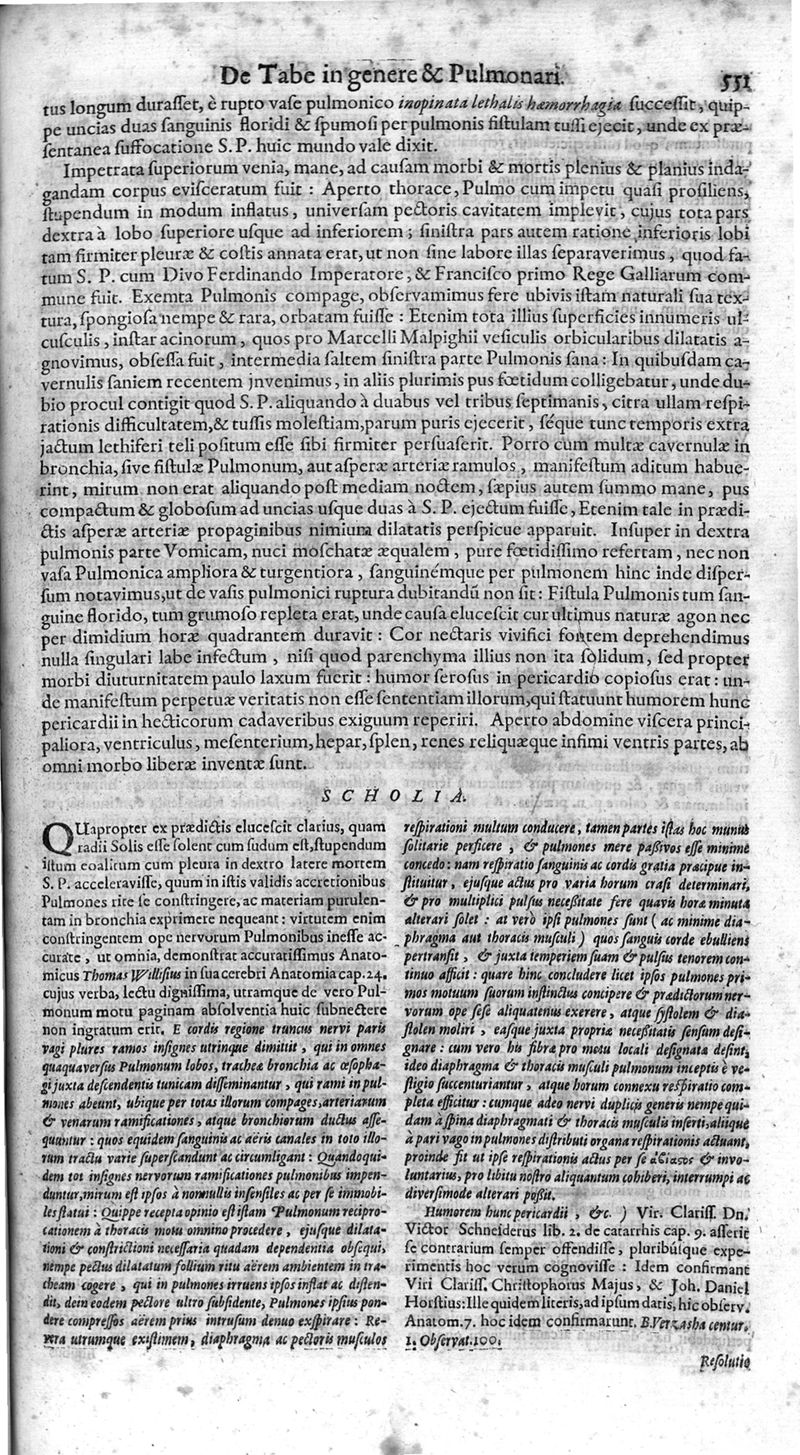 De Tabe in genere & Pulmonari. 551
tus longum duraſſet, è rupto vaſe pulmonico inopinata lethalis hæmorrhagia ſucceſſit, quip-
pe uncias duas ſanguinis floridi & ſpumoſi per pulmonis fiſtulam tuſſi ejecit, unde ex præ-
ſentanea ſuffocatione S. P. huic mundo vale dixit.
Impetrata ſuperiorum venia, mane, ad cauſam morbi & mortis plenius & planius inda-
gandam corpus eviſceratum fuit : Aperto thorace, Pulmo cum impetu quaſi proſiliens,
ſtupendum in modum inflatus, univerſam pectoris cavitatem implevit, cujus tota pars
dextra à lobo ſuperiore uſque ad inferiorem; ſiniſtra pars autem ratione inferioris lobi
tam firmiter pleuræ & coſtis annata erat, ut non ſine labore illas ſeparaverimus, quod fa-
tum S. P. cum Divo Ferdinando Imperatore, & Franciſco primo Rege Galliarum com-
mune fuit. Exemta Pulmonis compage, obſervamimus fere ubivis iſtam naturali ſua tex-
tura, ſpongioſa nempe & rara, orbatam fuiſſe : Etenim tota illius ſuperficies innumeris ul-
cuſculis, inſtar acinorum, quos pro Marcelli Malpighii veſiculis orbicularibus dilatatis a-
gnovimus, obſeſſa fuit, intermedia ſaltem ſiniſtra parte Pulmonis ſana : In quibuſdam ca-
vernulis ſaniem recentem jnvenimus, in aliis plurimis pus fœtidum colligebatur, unde du-
bio procul contigit quod S. P. aliquando à duabus vel tribus ſeptimanis, citra ullam reſpi-
rationis difficultatem,& tuſſis moleſtiam,parum puris ejecerit, ſéque tunc temporis extra
jactum lethiferi teli poſitum eſſe ſibi firmiter perſuaſerit. Porro cum multæ cavernulæ in
bronchia, ſive fiſtulæ Pulmonum, aut aſperæ arteriæ ramulos, manifeſtum aditum habue-
rint, mirum non erat aliquando poſt mediam noctem, ſæpius autem ſummo mane, pus
compactum & globoſum ad uncias uſque duas à S. P. ejectum fuiſſe, Etenim tale in prædi-
ctis aſperæ arteriæ propaginibus nimium dilatatis perſpicue apparuit. Inſuper in dextra
pulmonis parte Vomicam, nuci moſchatæ æqualem, pure fœtidiſſimo refertam, nec non
vaſa Pulmonica ampliora & turgentiora, ſanguinémque per pulmonem hinc inde diſper-
ſum notavimus,ut de vaſis pulmonici ruptura dubitandū non ſit : Fiſtula Pulmonis tum ſan-
guine florido, tum grumoſo repleta erat, unde cauſa eluceſcit cur ultimus naturæ agon nec
per dimidium horæ quadrantem duravit : Cor nectaris vivifici fontem deprehendimus
nulla ſingulari labe infectum, niſi quod parenchyma illius non ita ſolidum, ſed propter
morbi diuturnitatem paulo laxum fuerit : humor ſeroſus in pericardio copioſus erat : un-
de manifeſtum perpetuæ veritatis non eſſe ſententiam illorum,qui ſtatuunt humorem hunc
pericardii in hecticorum cadaveribus exiguum reperiri. Aperto abdomine viſcera princi-
paliora, ventriculus, meſenterium, hepar, ſplen, renes reliquæque infimi ventris partes, ab
omni morbo liberæ inventæ ſunt.
SCHOLIA.
QUapropter ex prædictis eluceſcit clarius, quam
radii Solis eſſe ſolent cum ſudum eſt, ſtupendum
iſtum coalitum cum pleura in dextro latere mortem
S. P. acceleraviſſe, quum in iſtis validis accretionibus
Pulmones rite ſe conſtringere, ac materiam purulen-
tam in bronchia exprimere nequeant : virtutem enim
conſtringentem ope nervorum Pulmonibus ineſſe ac-
curate, ut omnia, demonſtrat accuratiſſimus Anato-
micus Thomas Williſius in ſua cerebri Anatomia cap. 24.
cujus verba, lectu digniſſima, utramque de vero Pul-
monum motu paginam abſolventia huic ſubnectere
non ingratum erit. E cordis regione truncus nervi paris
vagi plures ramos inſignes utrinque dimittit, qui in omnes
quaquaverſus Pulmonum lobos, tracheæ bronchia ac œſopha-
gi juxta deſcendentis tunicam diſſeminantur, qui rami in pul-
mones abeunt, ubique per totas illorum compages, arteriarum
& venarum ramificationes, atque bronchiorum ductus aſſe-
quuntur : quos equidem ſanguinis ac aëris canales in toto illo-
rum tractu varie ſuperſcandunt ac circumligant : Quandoqui-
dem tot inſignes nervorum ramificationes pulmonibus impen-
duntur, mirum eſt ipſos à nonnullis inſenſiles ac per ſe immobi-
les ſtatui : Quippe recepta opinio eſt iſtam Pulmonum recipro-
cationem à thoracis motu omnino procedere, ejuſque dilata-
tioni & conſtrictioni neceſſaria quadam dependentia obſequi,
nempe pectus dilatatum follium ritu aërem ambientem in tra-
cheam cogere, qui in pulmones irruens ipſos inflat ac diſten-
dit, dein eodem pectore ultro ſubſidente, Pulmones ipſius pon-
dere compreſſos aërem prius intruſum denuo exſpirare : Re-
vera utrumque exiſtimem, diaphragma ac pectoris muſculos
reſpirationi multum conducere, tamen partes iſtas hoc munus
ſolitarie perficere, & pulmones mere paſſivos eſſe minime
concedo : nam reſpiratio ſanguinis ac cordis gratia præcipue in-
ſtituitur, ejuſque actus pro varia horum craſi determinari,
& pro multiplici pulſus neceſſitate fere quavis hora minuta
alterari ſolet : at verò ipſi pulmones ſunt ( ac minime dia-
phragma aut thoracis muſculi ) quos ſanguis corde ebulliens
pertranſit, & juxta temperiem ſuam & pulſus tenorem con-
tinuo afficit : quare hinc concludere licet ipſos pulmones pri-
mos motuum ſuorum inſtinctus concipere & prædictorum ner-
vorum ope ſeſe aliquatenus exerere, atque ſyſtolem & dia-
ſtolen moliri, eaſque juxta propriæ neceſſitatis ſenſum deſi-
gnare : cum vero his fibræ pro motu locali deſignata deſint,
ideo diaphragma & thoracis muſculi pulmonum inceptis è ve-
ſtigio ſuccenturiantur, atque horum connexu reſpiratio com-
pleta efficitur : cumque adeo nervi duplicis generis nempe qui-
dam à ſpina diaphragmati & thoracis muſculis inſerti, aliique
à pari vago in pulmones diſtributi organa reſpirationis actuant,
proinde fit ut ipſe reſpirationis actus per ſe ἀβίασος & invo-
luntarius, pro libitu noſtro aliquantum cohiberi, interrumpi ac
diverſimode alterari poſſit.
Humorem hunc pericardii, &c. ) Vir. Clariſſ. Dn.
Victor Schneiderus lib. 2. de catarrhis cap. 9. aſſerit
ſe contrarium ſemper offendiſſe, pluribúſque expe-
rimentis hoc verum cognoviſſe : Idem confirmant
Viri Clariſſ. Chriſtophorus Majus, & Joh. Daniel
Horſtius: Ille quidem literis, ad ipſum datis, hic obſerv.
Anatom. 7. hoc idem confirmarunt. B. Verzasha centur.
1. Obſervat. 100.
Reſolutio